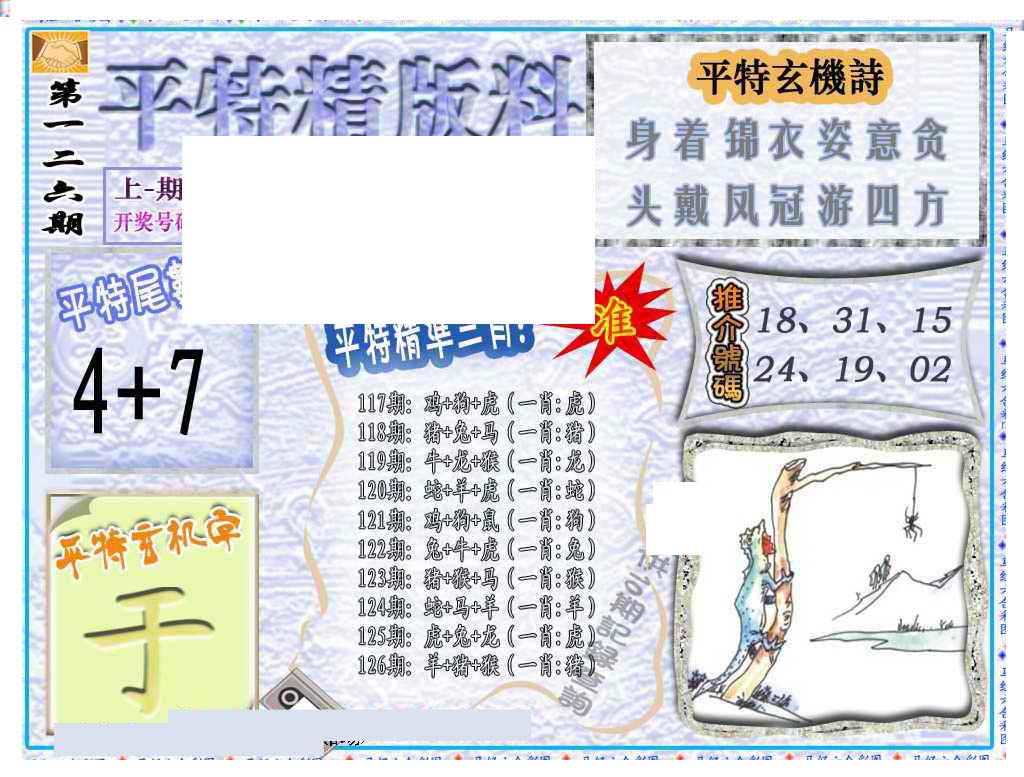 第一二六期
平特精版料
上-期
开奖号
平特玄機詩
身着锦衣姿意贪
头戴凤冠游四方
平特尾
4+7
平特精準三肖!
准
117期: 鸡+狗+虎 (一肖:虎)
118期: 猪+兔+马 (一肖:猪)
119期: 牛+龙+猴 (一肖:龙)
120期: 蛇+羊+虎 (一肖:蛇)
121期: 鸡+狗+鼠 (一肖:狗)
122期: 兔+牛+虎 (一肖:兔)
123期: 猪+猴+马 (一肖:猴)
124期: 蛇+马+羊 (一肖:羊)
125期: 虎+兔+龙 (一肖:虎)
126期: 羊+猪+猴 (一肖:猪)
推介號碼
18、31、15
24、19、02
平特玄机字
于
供多期記錄查詢